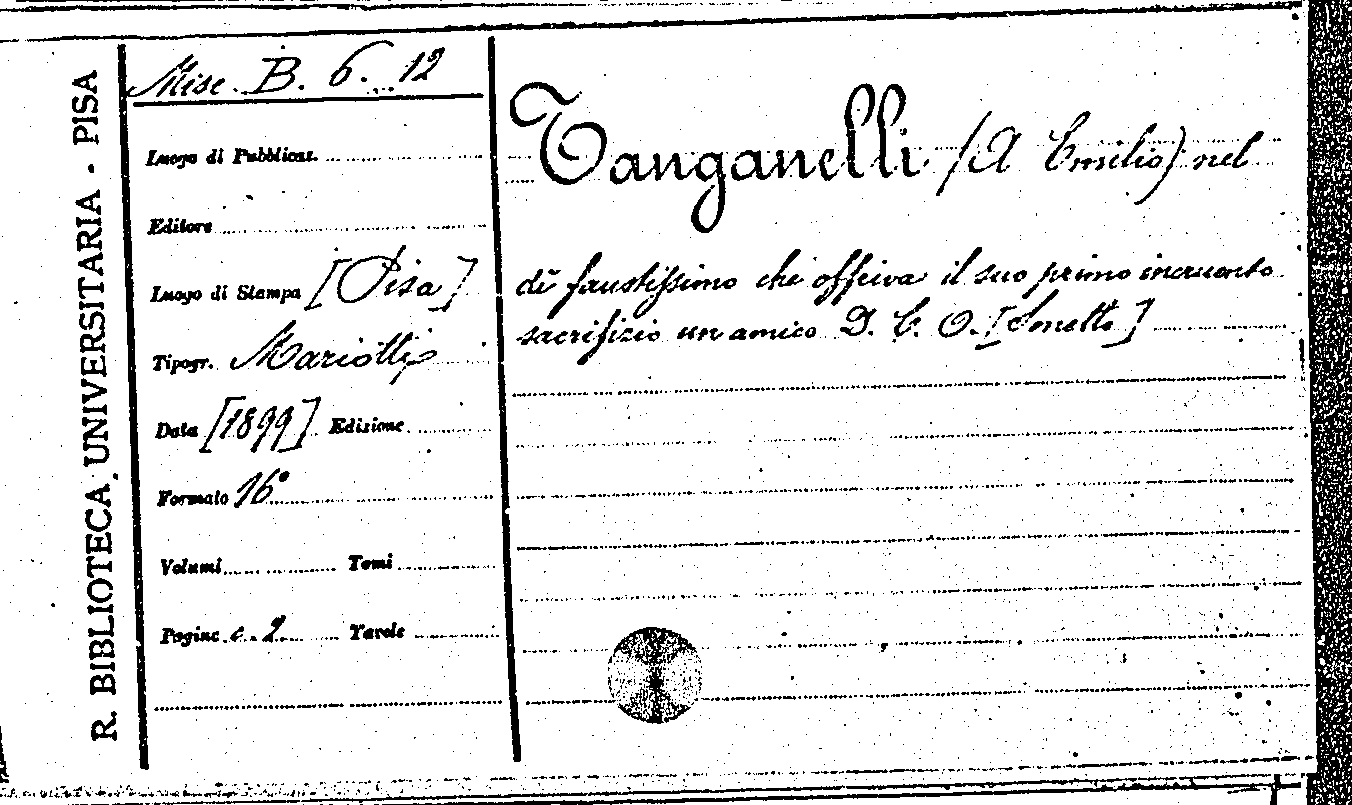 R. BIBLIOTECA UNIVERSITARIA - PISA
Misc. B. 6. 12
Luogo di Pubblicaz.
Editore
Luogo di Stampa [Pisa]
Tipogr. Mariotti
Data [1899] Edizione
Formato 16°
Volumi Tomi
Pagine c. 2 Tavole
Tanganelli (A Emilio) nel
dì faustissimo che offriva il suo primo incruento
sacrifizio un amico D. C. O. [Sonetto]